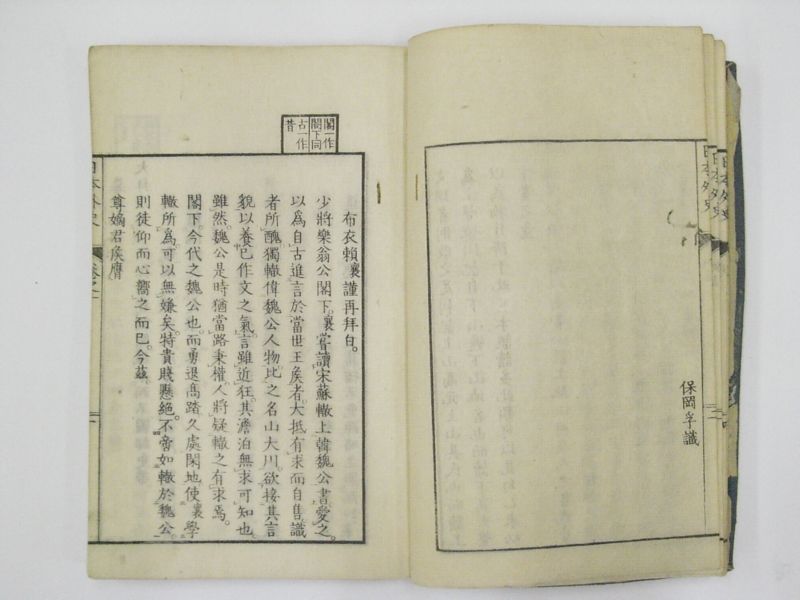 日本外史
日本外史
保岡孚識
閣一作
閤下同
古一作
昔
布衣賴襄謹再拜白。
少將樂翁公閣下。襄嘗讀宋蘇轍上韓魏公書、愛之。
以爲自古進言於當世王矦者、大抵有求而自售、識
者所醜、獨轍偉魏公人物、比之名山大川、欲接其言
貌以養己作文之氣。言雖近狂、其澹泊無求可知也。
雖然、魏公是時猶當路秉權、人將疑轍之有求焉。
閣下、今代之魏公也。而勇退高踏、久處閑地、使襄學
轍所爲、可以無嫌矣。特貴賤懸絕、不啻如轍於魏公。
則徒仰而心嚮之而已。今茲、
尊嫡君矦膺
日本外史